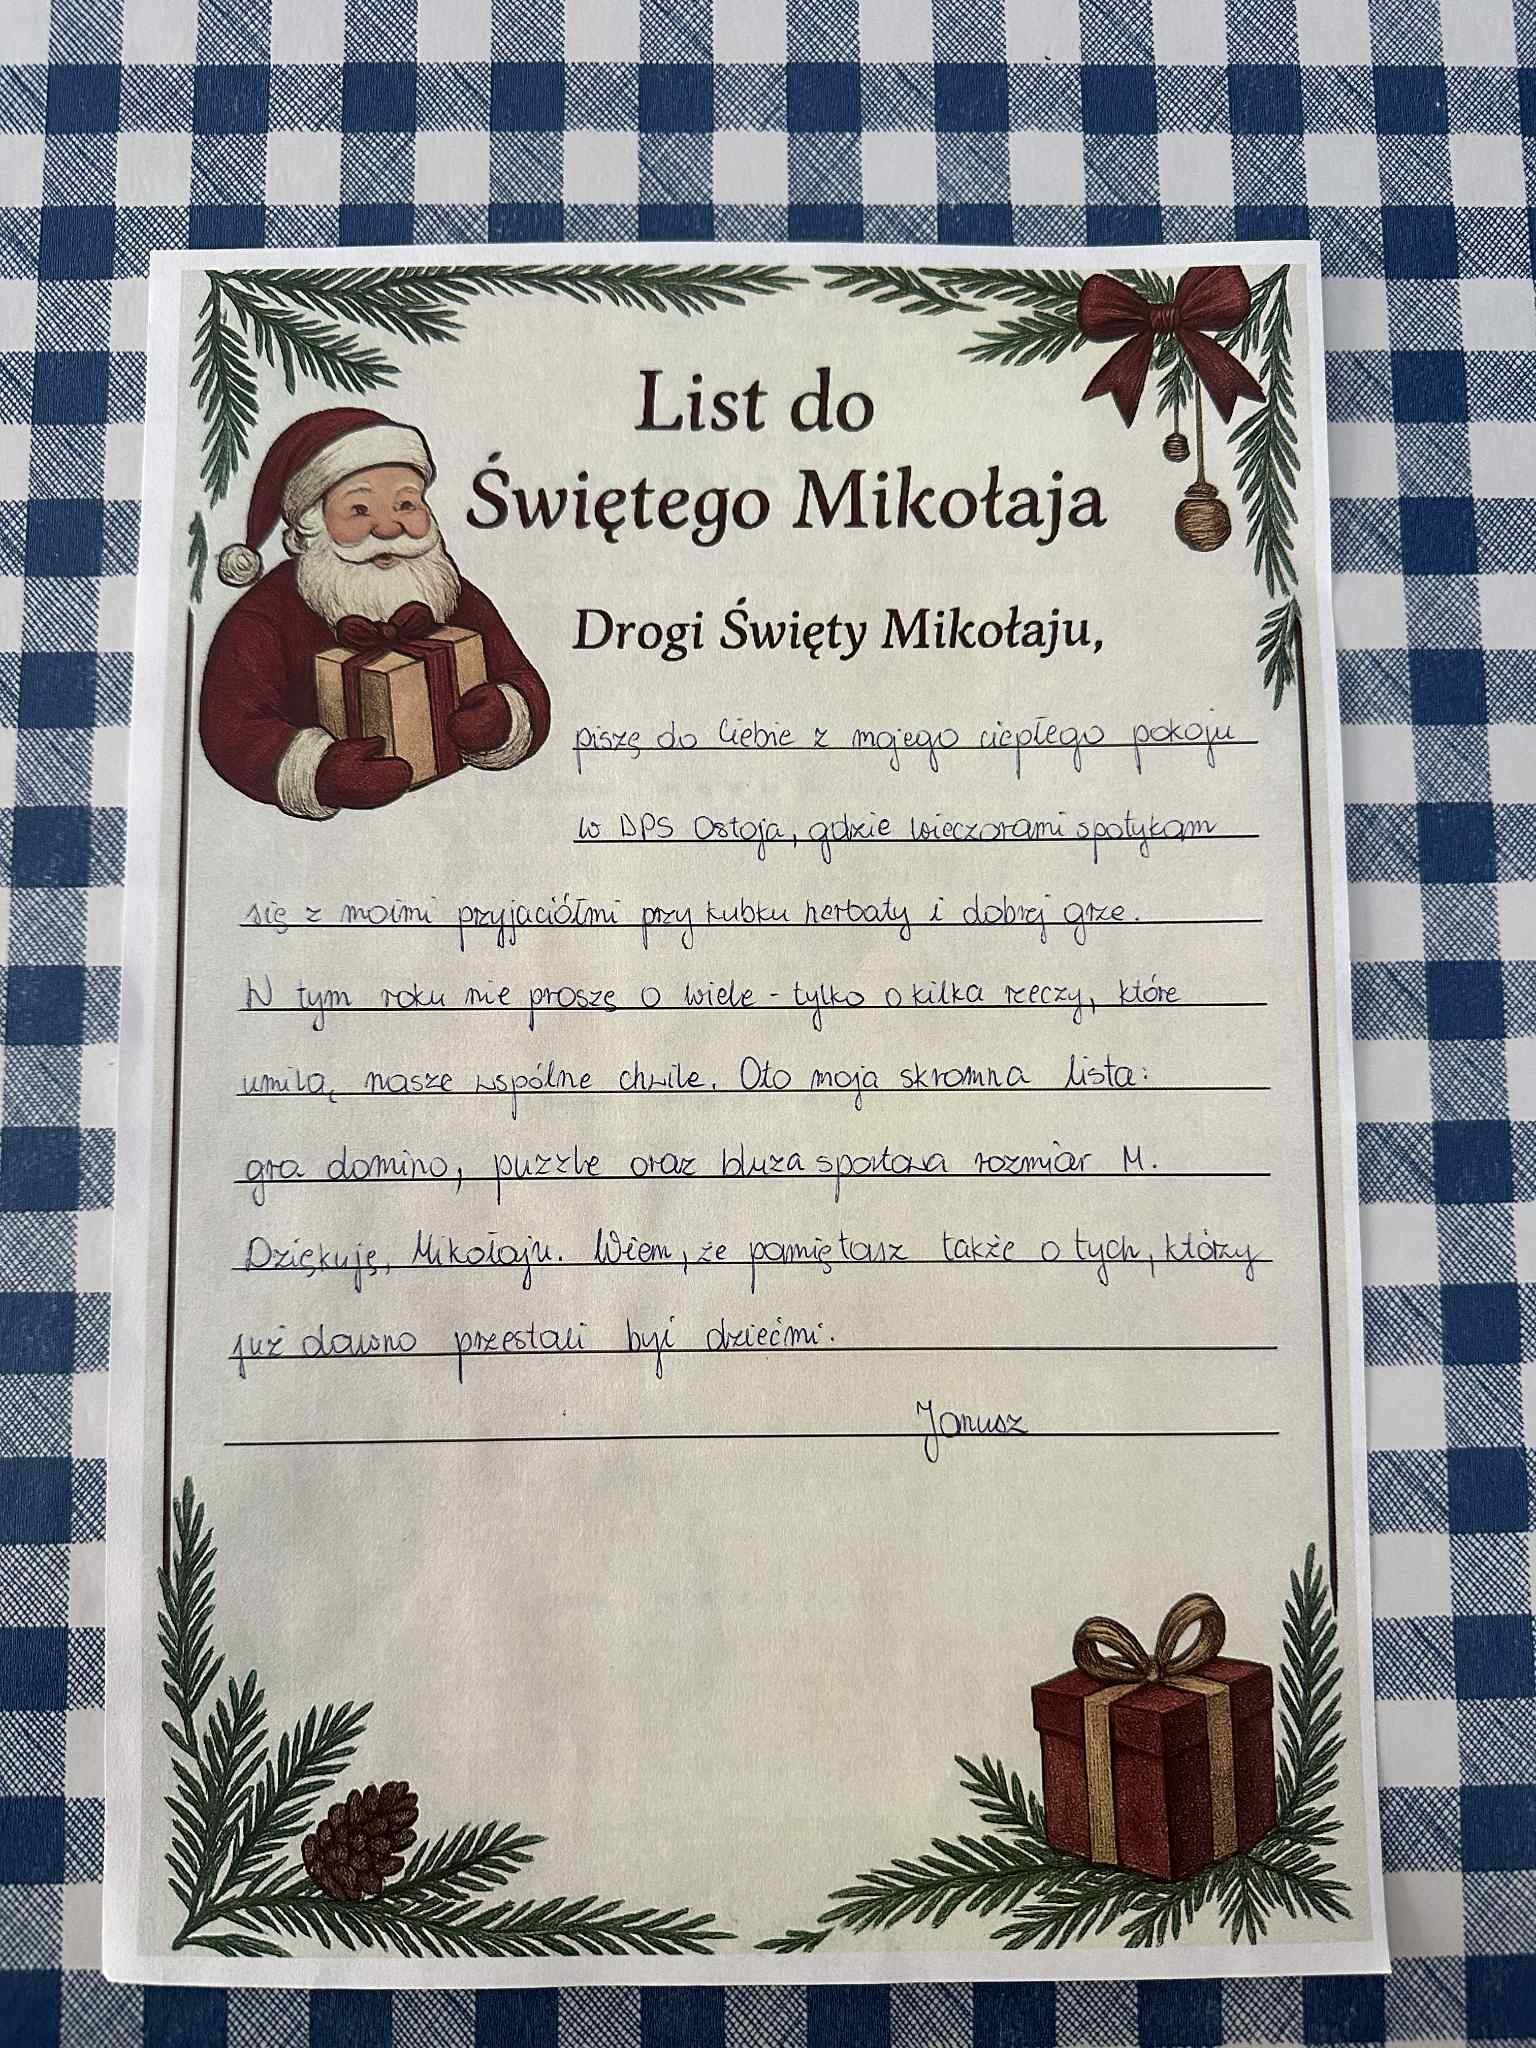 List do
Świętego Mikołaja
Drogi Święty Mikołaju,
piszę do Ciebie z mojego ciepłego pokoju
w DPS Ostoja, gdzie wieczorami spotykam
się z moimi przyjaciółmi przy kubku herbaty i dobrej grze.
W tym roku nie proszę o wiele - tylko o kilka rzeczy, które
umilą nasze wspólne chwile. Oto moja skromna lista:
gra domino, puzzle oraz bluza sportowa rozmiar M.
Dziękuję, Mikołaju. Wiem, że pamiętasz także o tych, którzy
już dawno przestali być dziećmi.
Janusz